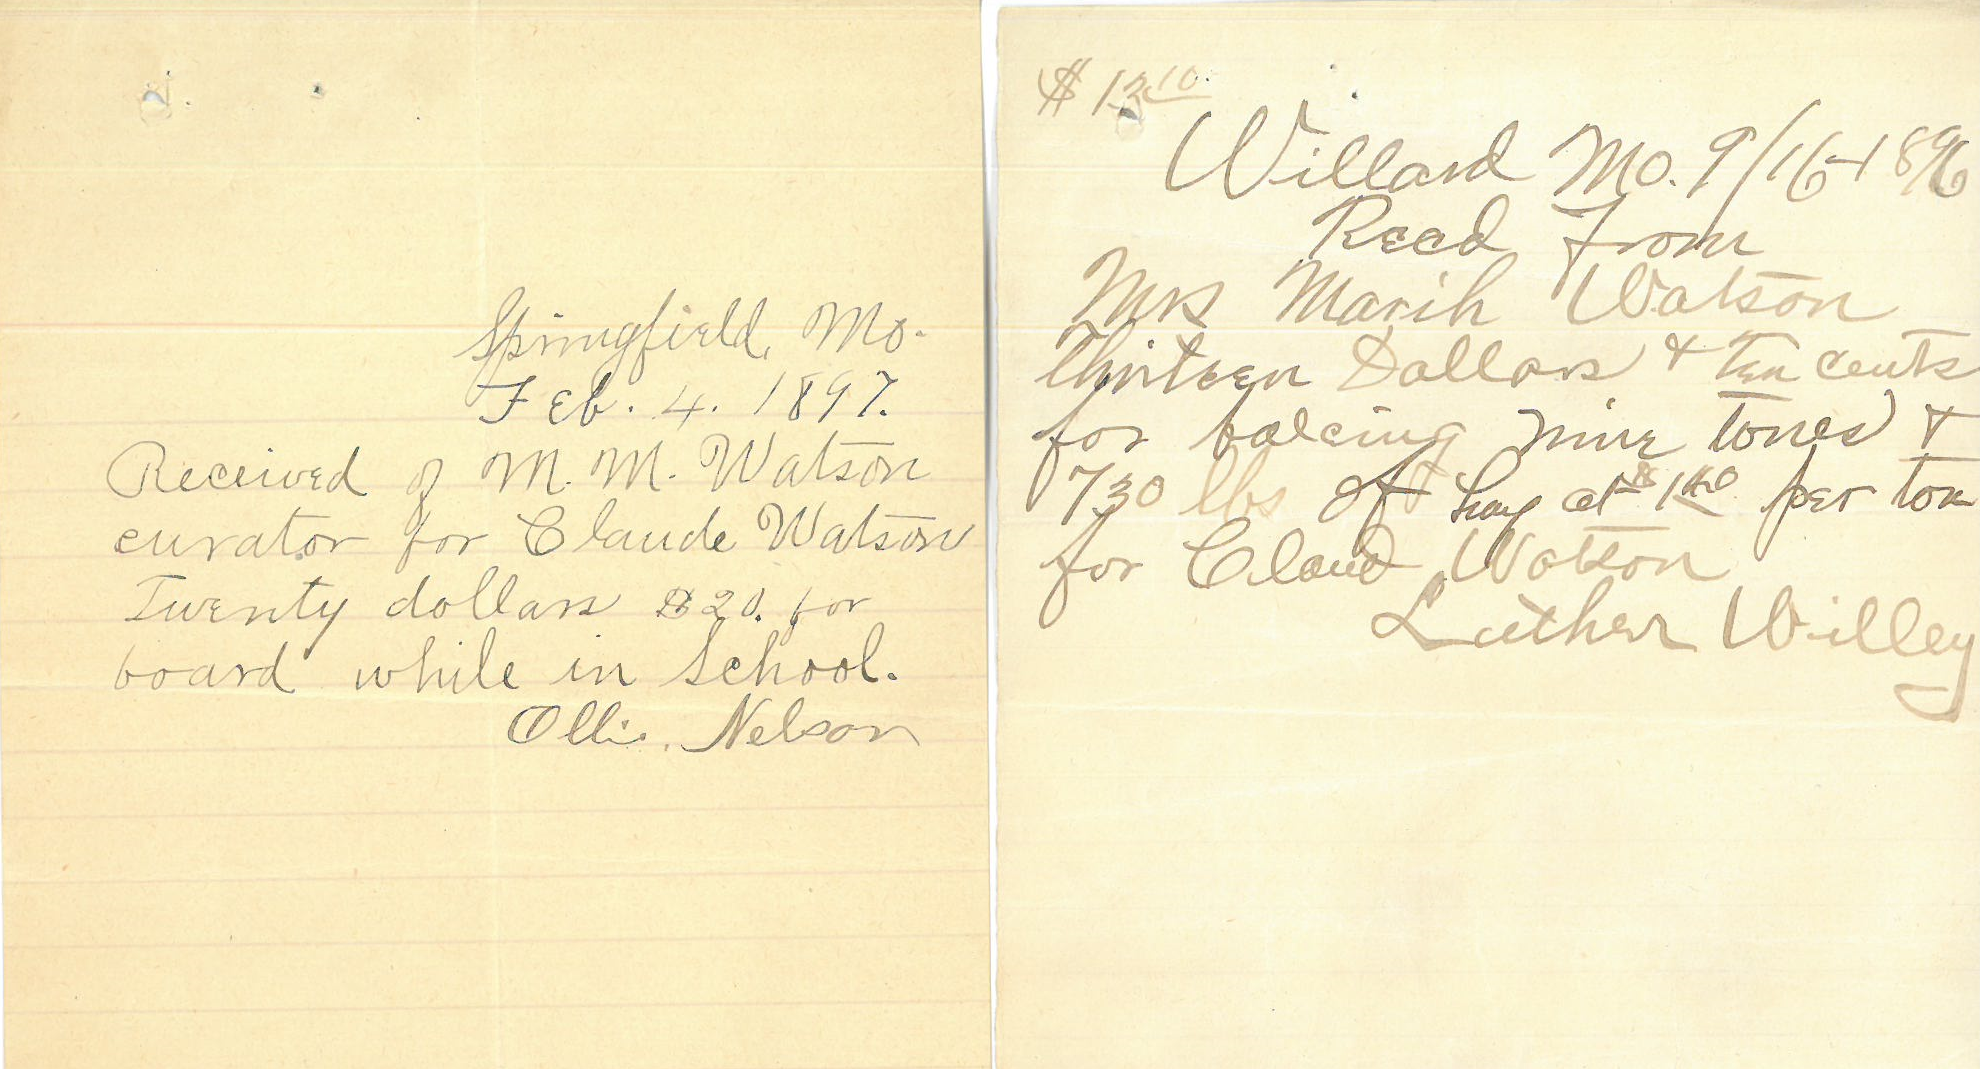 Springfield, Mo.
Feb. 4. 1897.
Received of M. M. Watson
curator for Claude Watson
Twenty dollars $20. for
board while in School.
Ollie. Nelson
$13.10
Willard Mo. 9/16-1896
Recd From
Mrs Marih Watson
Thirteen Dollars & Ten cents
for baleing nine tones &
730 lbs of hay at $1.40 per ton
for Claud Watson
Luther Willey